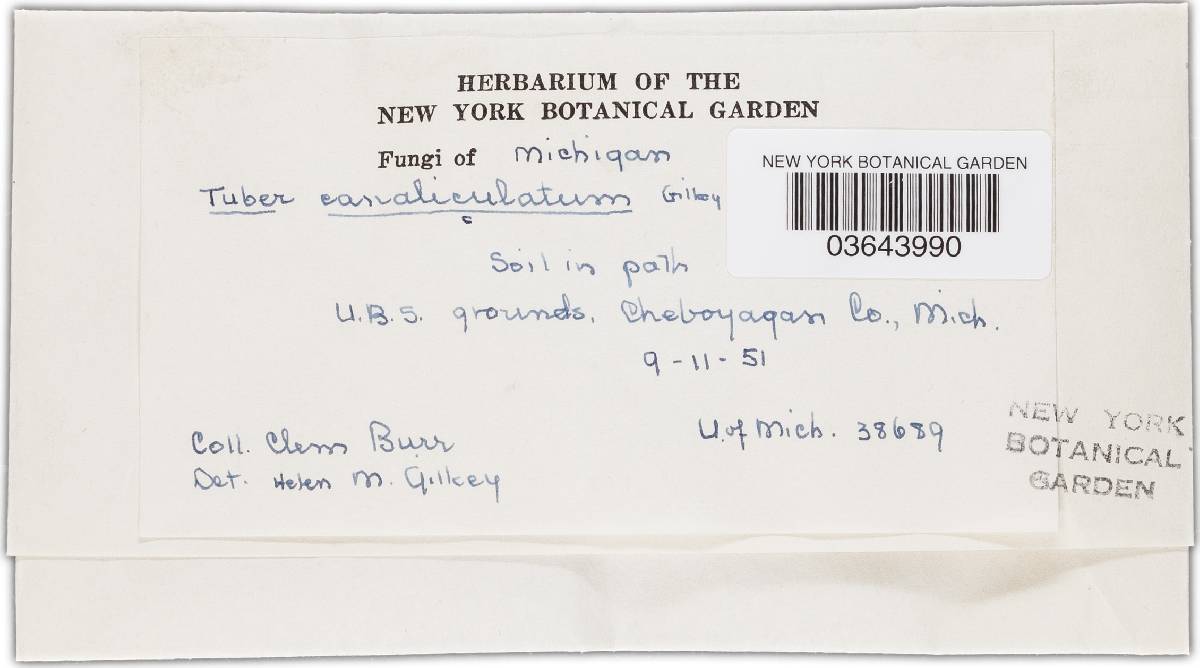 HERBARIUM OF THE
NEW YORK BOTANICAL GARDEN
Fungi of Michigan
Tuber canaliculatum Gilkey
c
NEW YORK BOTANICAL GARDEN
03643990
Soil in path
U.B.S. grounds, Cheboyagan Co., Mich.
9-11-51
Coll. Clem Burr
U. of Mich. 38689
Det. Helen M. Gilkey
NEW YORK
BOTANICAL
GARDEN